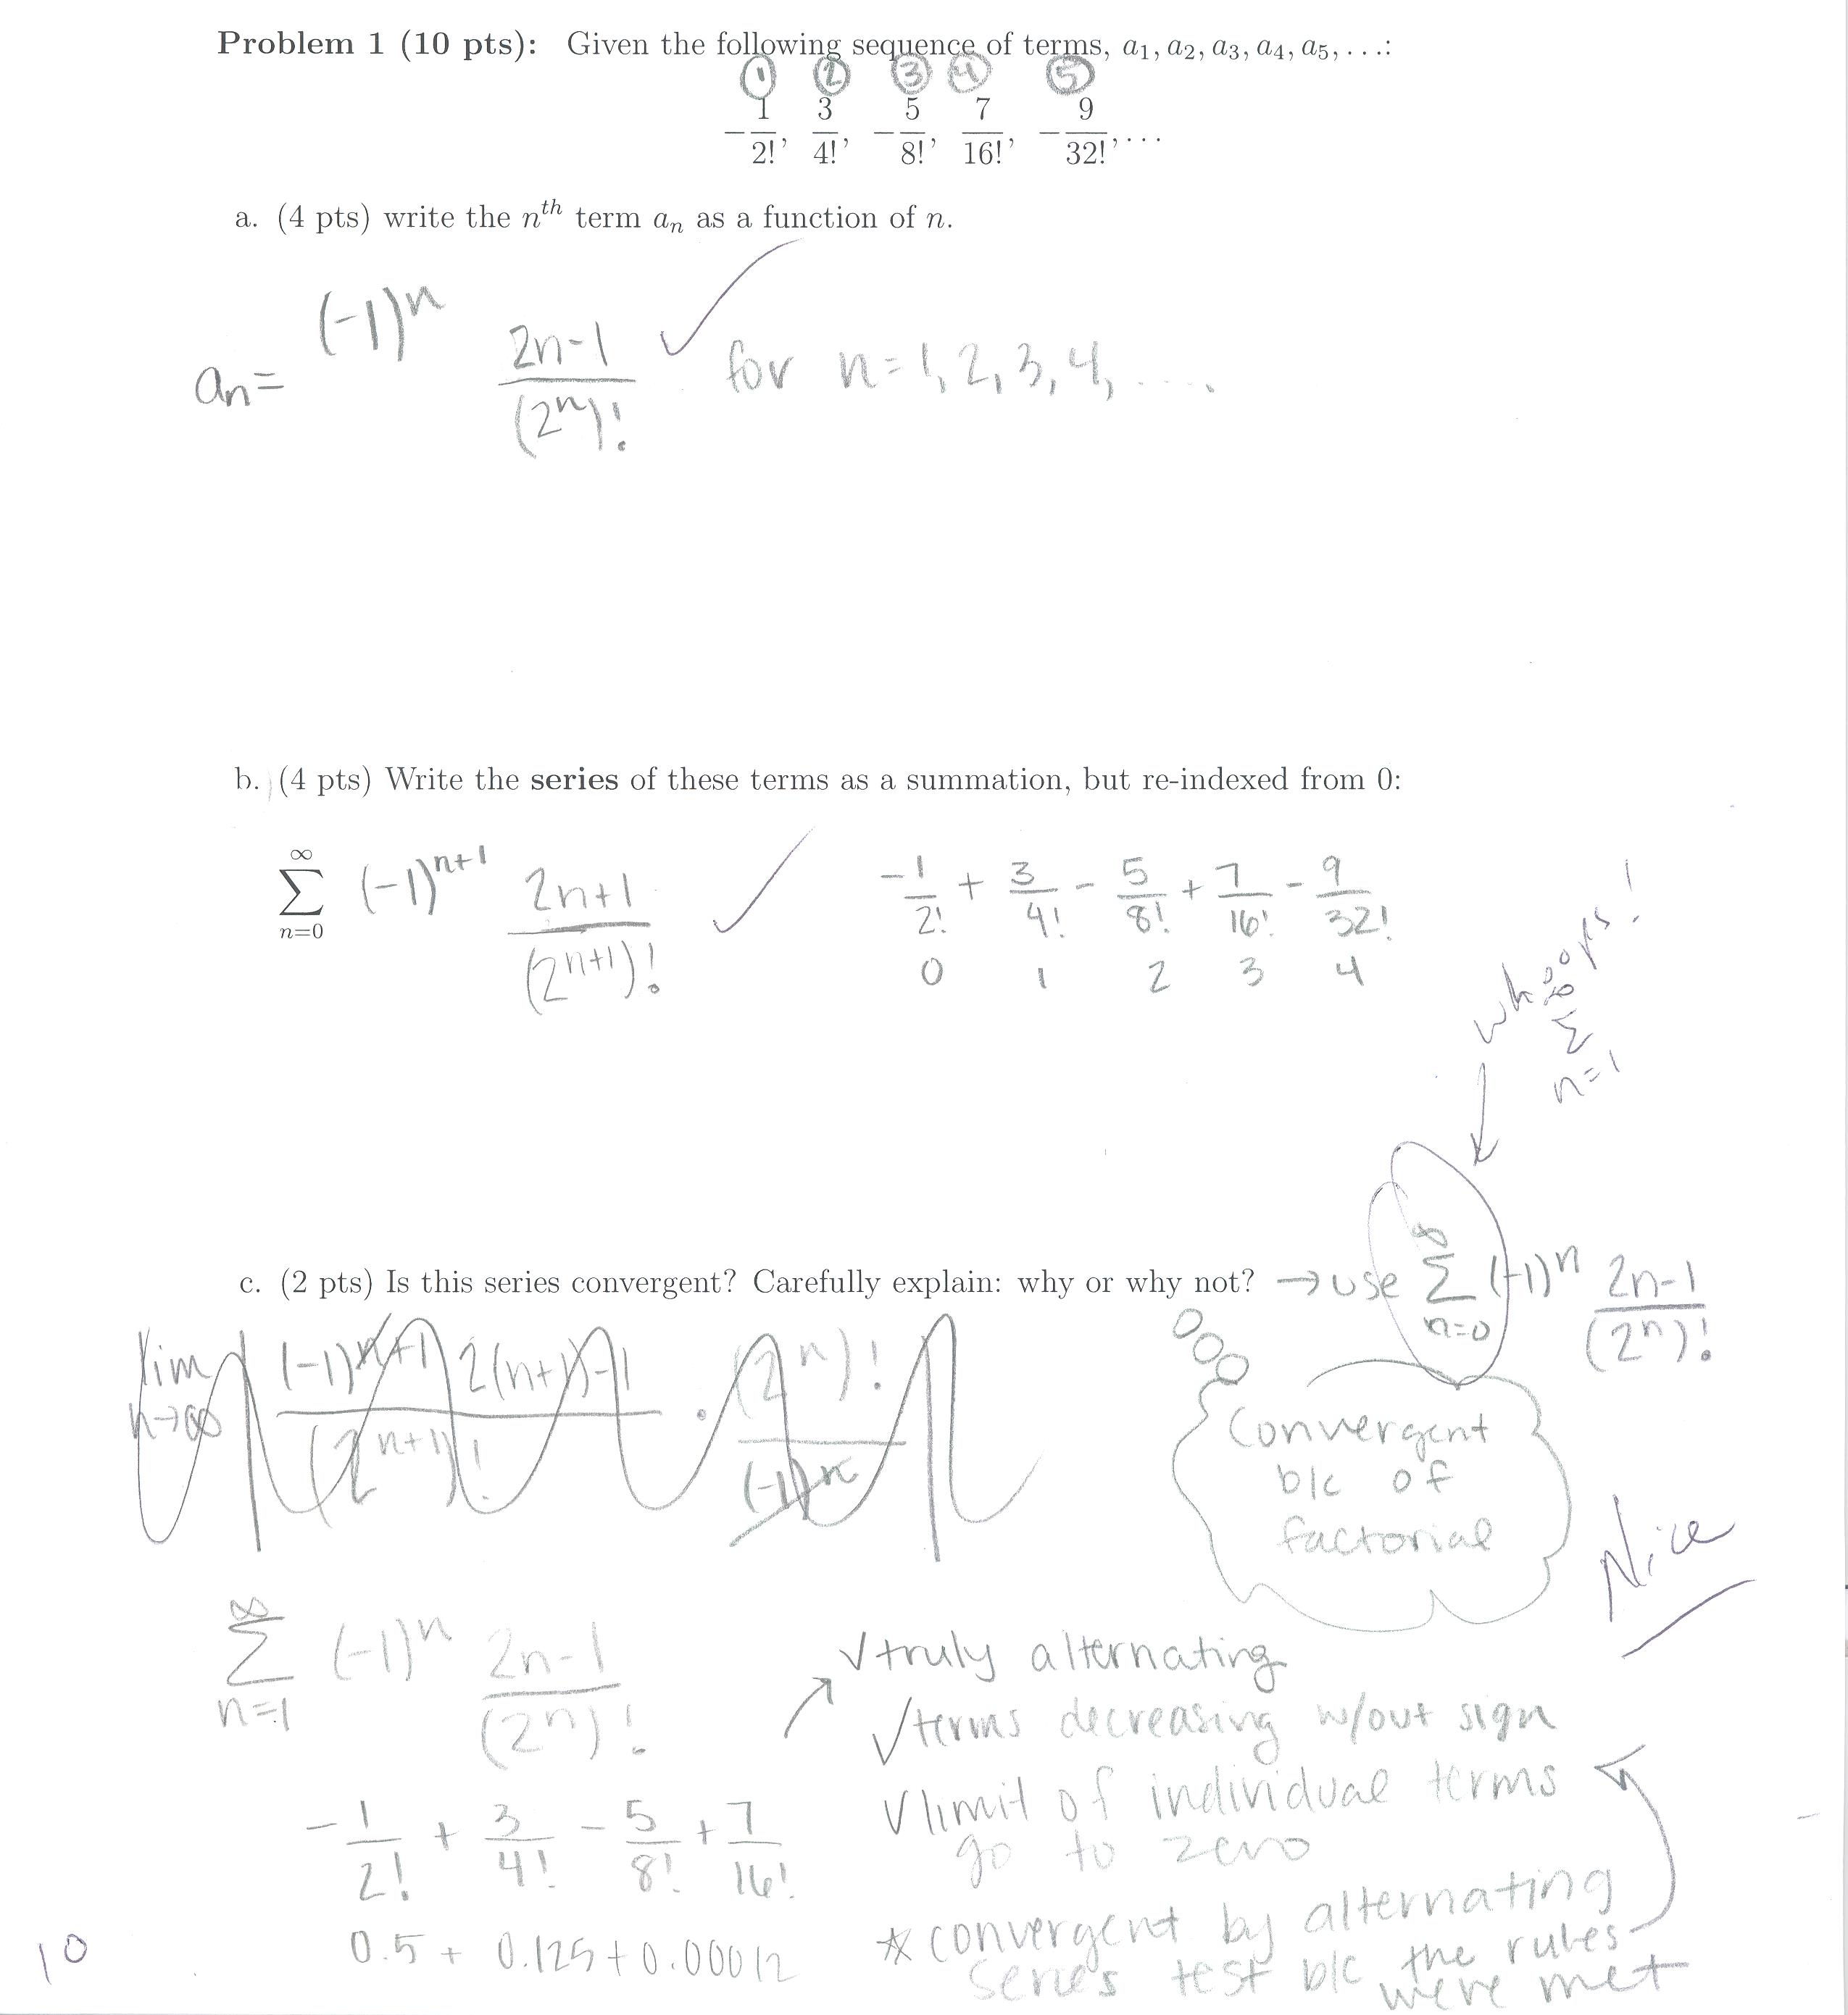 Problem 1 (10 pts): Given the following sequence of terms, a₁, a₂, a₃, a₄, a₅, . . .:
① ② ③ ④ ⑤
−1/2!, 3/4!, −5/8!, 7/16!, −9/32!, · · ·
a. (4 pts) write the nᵗʰ term aₙ as a function of n.
aₙ = (-1)ⁿ (2n-1)/(2ⁿ)! ✓ for n=1, 2, 3, 4, ....
b. (4 pts) Write the series of these terms as a summation, but re-indexed from 0:
∞ ∑ n=0 (-1)ⁿ⁺¹ (2n+1)/(2ⁿ⁺¹)! ✓
-1/2! + 3/4! - 5/8! + 7/16! - 9/32!
0 1 2 3 4
whooops!
∞ ∑ n=1
c. (2 pts) Is this series convergent? Carefully explain: why or why not? → use ∞ ∑ n=0 (-1)ⁿ (2n-1)/(2ⁿ)!
lim n→∞ (-1)ⁿ⁺¹ 2(n+1)-1 / (2ⁿ⁺¹)! · (2ⁿ)! / (-1)ⁿ
Convergent
b/c of
factorial
Nice
∞ ∑ n=1 (-1)ⁿ (2n-1)/(2ⁿ)!
✓truly alternating
✓terms decreasing w/out sign
✓limit of individual terms
go to zero
- 1/2! + 3/4! - 5/8! + 7/16!
0.5 + 0.125 + 0.00012
* convergent by alternating
series test b/c the rules
were met
10